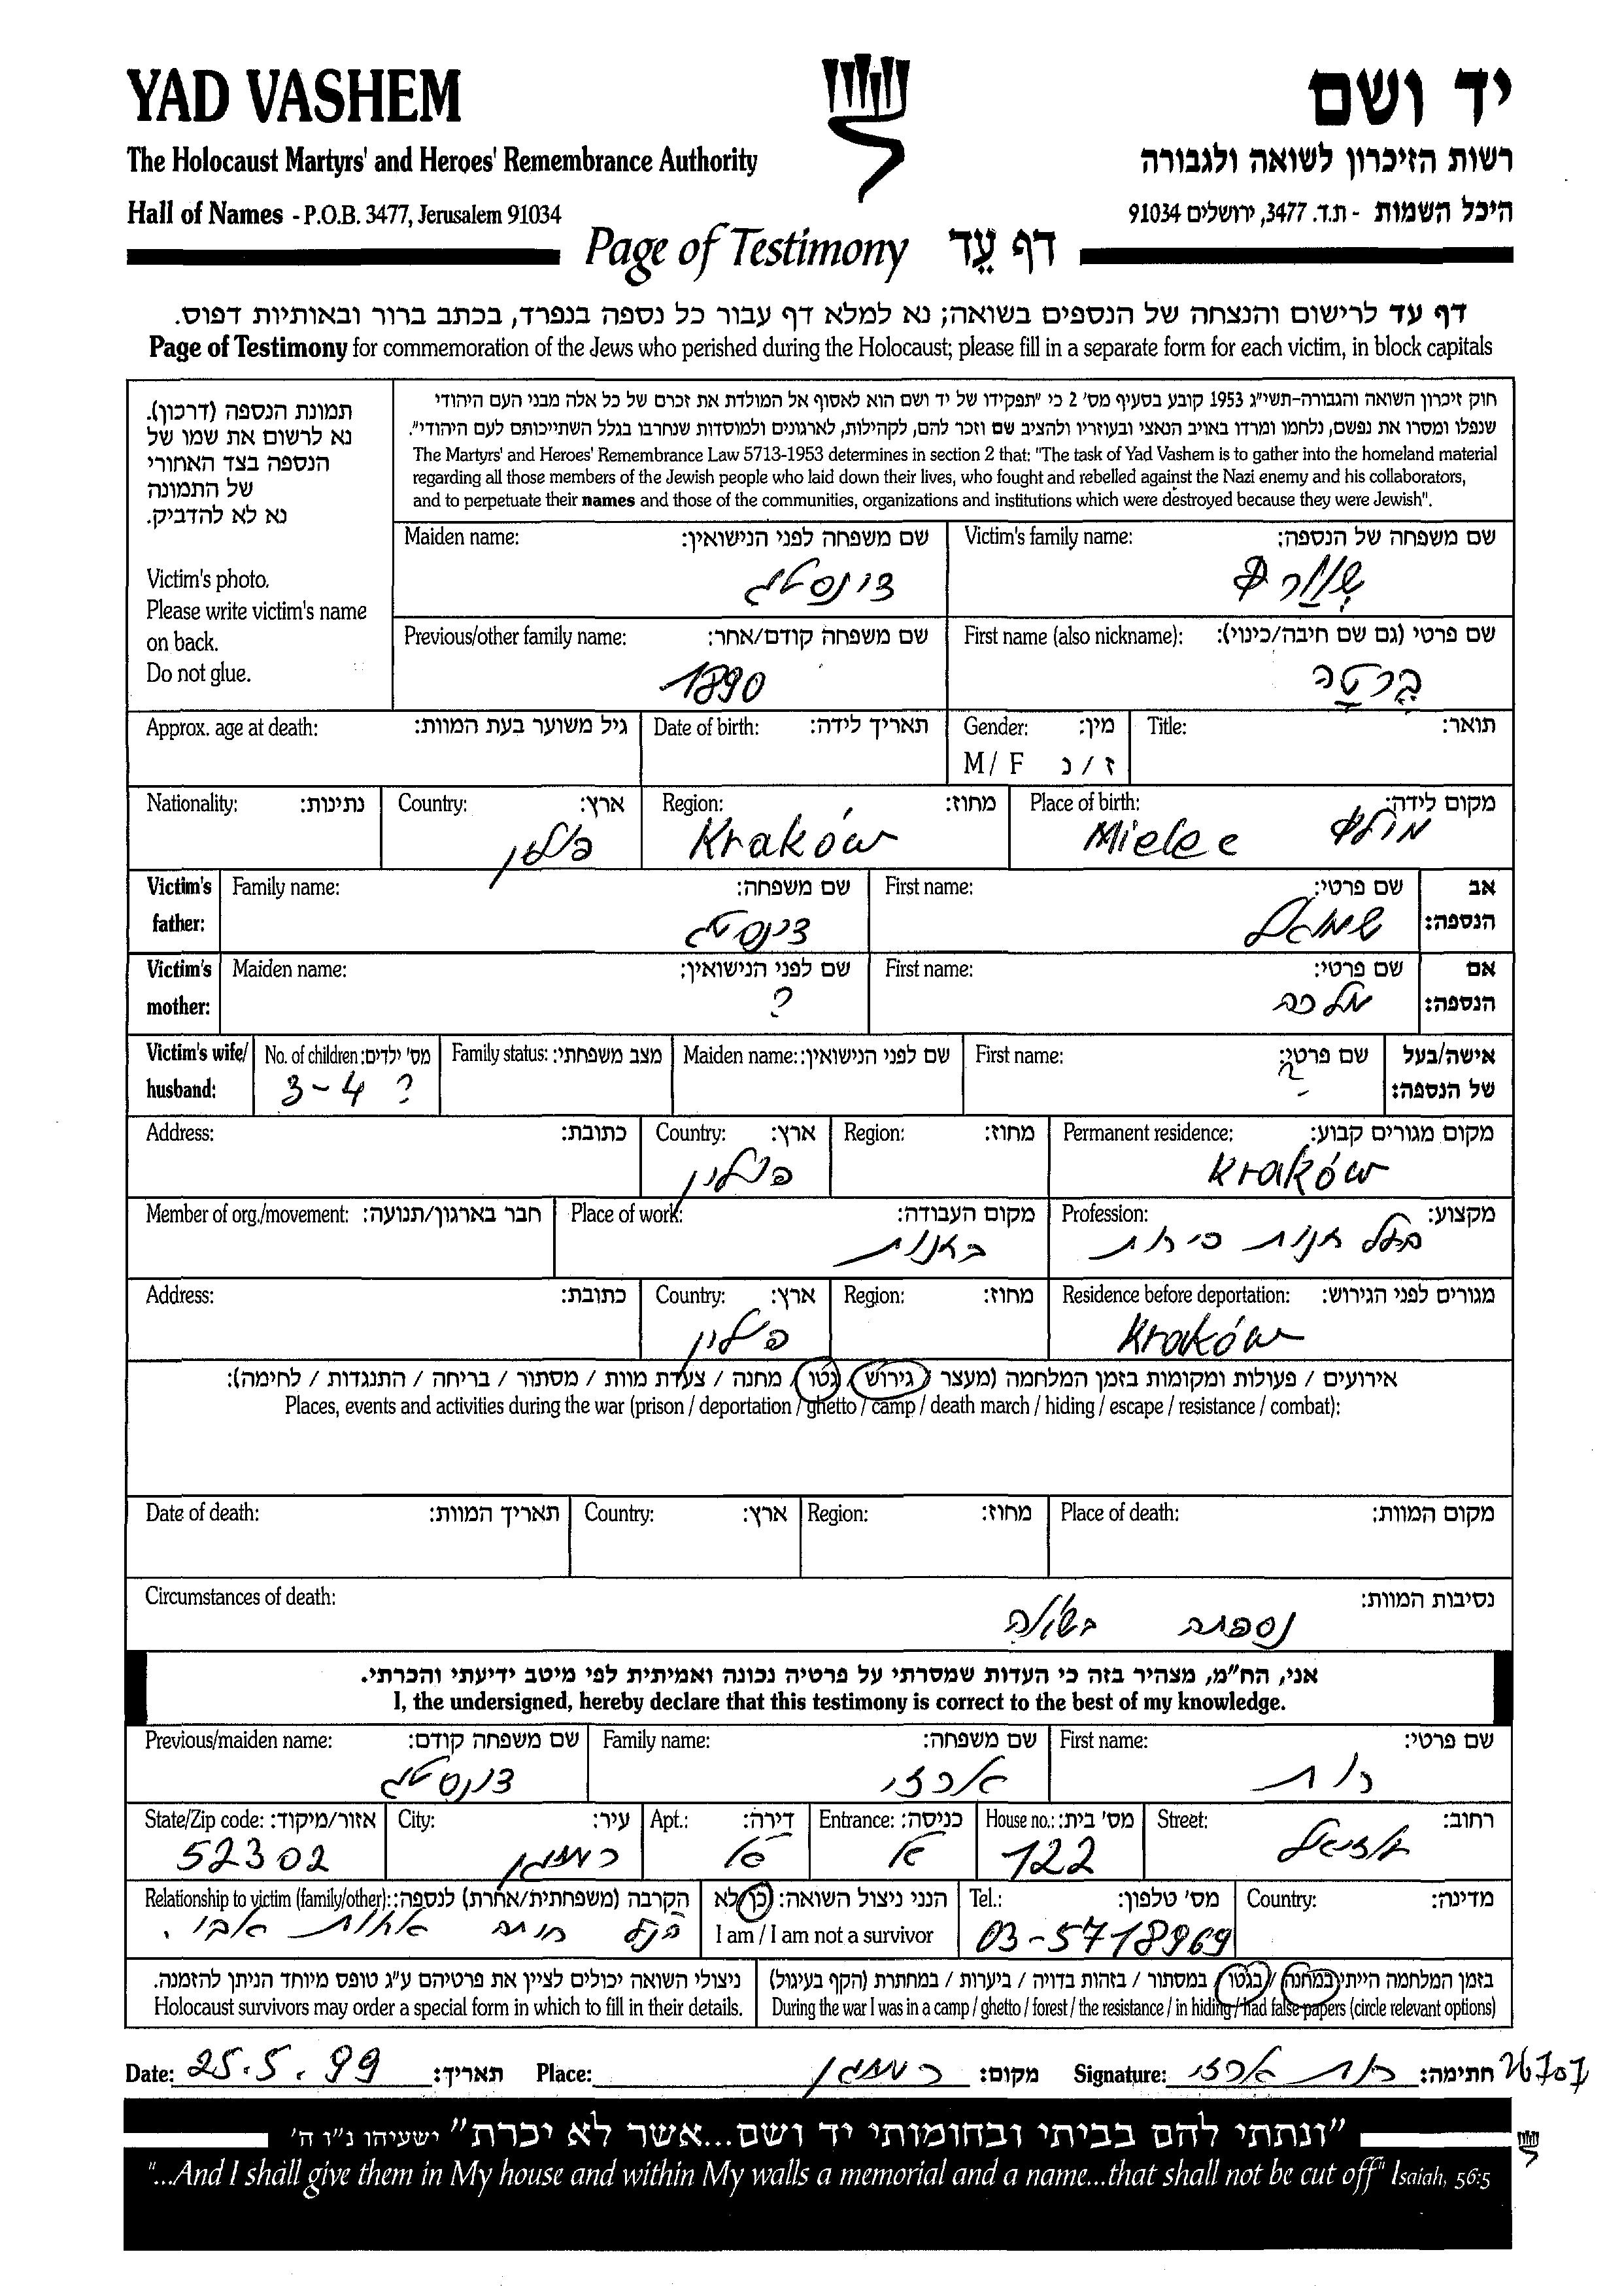 YAD VASHEM יד ושם
The Holocaust Martyrs' and Heroes' Remembrance Authority רשות הזיכרון לשואה ולגבורה
Hall of Names - P.O.B. 3477, Jerusalem 91034 היכל השמות - ת.ד. 3477, ירושלים 91034
Page of Testimony דף עֵד
דף עד לרישום והנצחה של הנספים בשואה; נא למלא דף עבור כל נספה בנפרד, בכתב ברור ובאותיות דפוס.
Page of Testimony for commemoration of the Jews who perished during the Holocaust; please fill in a separate form for each victim, in block capitals
תמונת הנספה (דרכון).
נא לרשום את שמו של
הנספה בצד האחורי
של התמונה
נא לא להדביק.
Victim's photo.
Please write victim's name
on back.
Do not glue.
חוק זיכרון השואה והגבורה-תשי"ג 1953 קובע בסעיף מס' 2 כי "תפקידו של יד ושם הוא לאסוף אל המולדת את זכרם של כל אלה מבני העם היהודי
שנפלו ומסרו את נפשם, נלחמו ומרדו באויב הנאצי ובעוזריו ולהציב שם וזכר להם, לקהילות, לארגונים ולמוסדות שנחרבו בגלל השתייכותם לעם היהודי".
The Martyrs' and Heroes' Remembrance Law 5713-1953 determines in section 2 that: "The task of Yad Vashem is to gather into the homeland material
regarding all those members of the Jewish people who laid down their lives, who fought and rebelled against the Nazi enemy and his collaborators,
and to perpetuate their names and those of the communities, organizations and institutions which were destroyed because they were Jewish".
Maiden name: שם משפחה לפני הנישואין: Victim's family name: שם משפחה של הנספה:
Previous/other family name: שם משפחה קודם/אחר: First name (also nickname): שם פרטי (גם שם חיבה/כינוי):
1890 ברטה
Approx. age at death: גיל משוער בעת המוות: Date of birth: תאריך לידה: Gender: מין: Title: תואר:
M / F ז / נ
Nationality: נתינות: Country: ארץ: Region: מחוז: Place of birth: מקום לידה:
פולין Kraków Mielec
Victim's father: Family name: שם משפחה: First name: שם פרטי: אב הנספה:
שמואל
Victim's mother: Maiden name: שם לפני הנישואין: First name: שם פרטי: אם הנספה:
? מלכה
Victim's wife/ husband: No. of children: מס' ילדים: Family status: מצב משפחתי: Maiden name: שם לפני הנישואין: First name: שם פרטי: אישה/בעל של הנספה:
3-4 ? ?
Address: כתובת: Country: ארץ: Region: מחוז: Permanent residence: מקום מגורים קבוע:
פולין Kraków
Member of org./movement: חבר בארגון/תנועה: Place of work: מקום העבודה: Profession: מקצוע:
בחנות בעל חנות
Address: כתובת: Country: ארץ: Region: מחוז: Residence before deportation: מגורים לפני הגירוש:
פולין Kraków
אירועים / פעולות ומקומות בזמן המלחמה (מעצר / גירוש / גטו / מחנה / צעדת מוות / מסתור / בריחה / התנגדות / לחימה):
Places, events and activities during the war (prison / deportation / ghetto / camp / death march / hiding / escape / resistance / combat):
Date of death: תאריך המוות: Country: ארץ: Region: מחוז: Place of death: מקום המוות:
Circumstances of death: נסיבות המוות:
נספתה בשואה
אני, הח"מ, מצהיר בזה כי העדות שמסרתי על פרטיה נכונה ואמיתית לפי מיטב ידיעתי והכרתי.
I, the undersigned, hereby declare that this testimony is correct to the best of my knowledge.
Previous/maiden name: שם משפחה קודם: Family name: שם משפחה: First name: שם פרטי:
ארזי רות
State/Zip code: אזור/מיקוד: City: עיר: Apt.: דירה: Entrance: כניסה: House no.: מס' בית: Street: רחוב:
52302 רמת גן 122 עוזיאל
Relationship to victim (family/other): הקרבה (משפחתית/אחרת) לנספה: הנני ניצול השואה: כן לא Tel.: מס' טלפון: Country: מדינה:
אחות אבי. I am / I am not a survivor 03-5718969
ניצולי השואה יכולים לציין את פרטיהם ע"ג טופס מיוחד הניתן להזמנה. בזמן המלחמה הייתי במחנה / בגטו / במסתור / בזהות בדויה / ביערות / במחתרת (הקף בעיגול)
Holocaust survivors may order a special form in which to fill in their details. During the war I was in a camp / ghetto / forest / the resistance / in hiding / had false papers (circle relevant options)
Date: 25.5.99 תאריך: Place: רמת גן מקום: Signature: רות ארזי חתימה:
"ונתתי להם בביתי ובחומותי יד ושם...אשר לא יכרת" ישעיהו נ"ו ה'
"...And I shall give them in My house and within My walls a memorial and a name...that shall not be cut off" Isaiah, 56:5